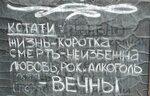 КСТАТИ:
ЖИЗНЬ-КОРОТКА
СМЕРТЬ-НЕИЗБЕЖНА
ЛЮБОВЬ, РОК И АЛКОГОЛЬ
- ВЕЧНЫ